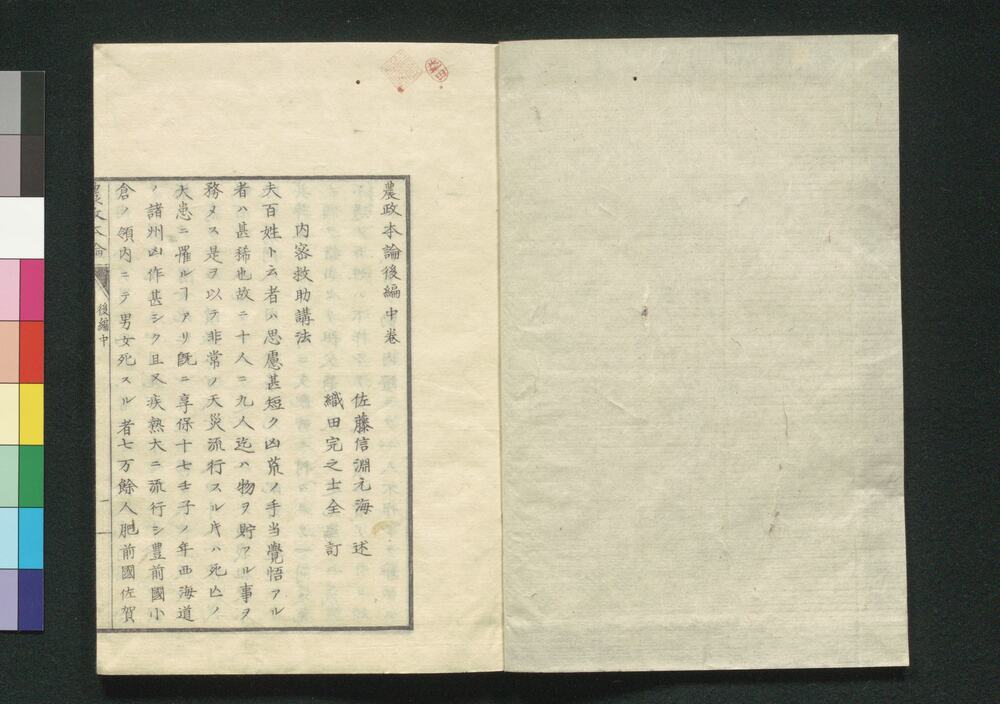 農政本論後編中卷
佐藤信淵元海 述
織田完之士全 訂
内容救助講法
夫百姓ト云者ハ思慮甚短ク凶荒ノ手当覺悟アル
者ハ甚稀也故ニ十人ニ九人迄ハ物ヲ貯フル事ヲ
務メス是ヲ以テ非常ノ天災流行スル片ハ死亡ノ
大患ニ罹ルヿアリ既ニ享保十七壬子ノ年西海道
ノ諸州凶作甚シク且又疾熱大ニ流行シ豊前國小
倉ノ領内ニテ男女死スル者七万餘人肥前國佐賀
農政本論
後編中